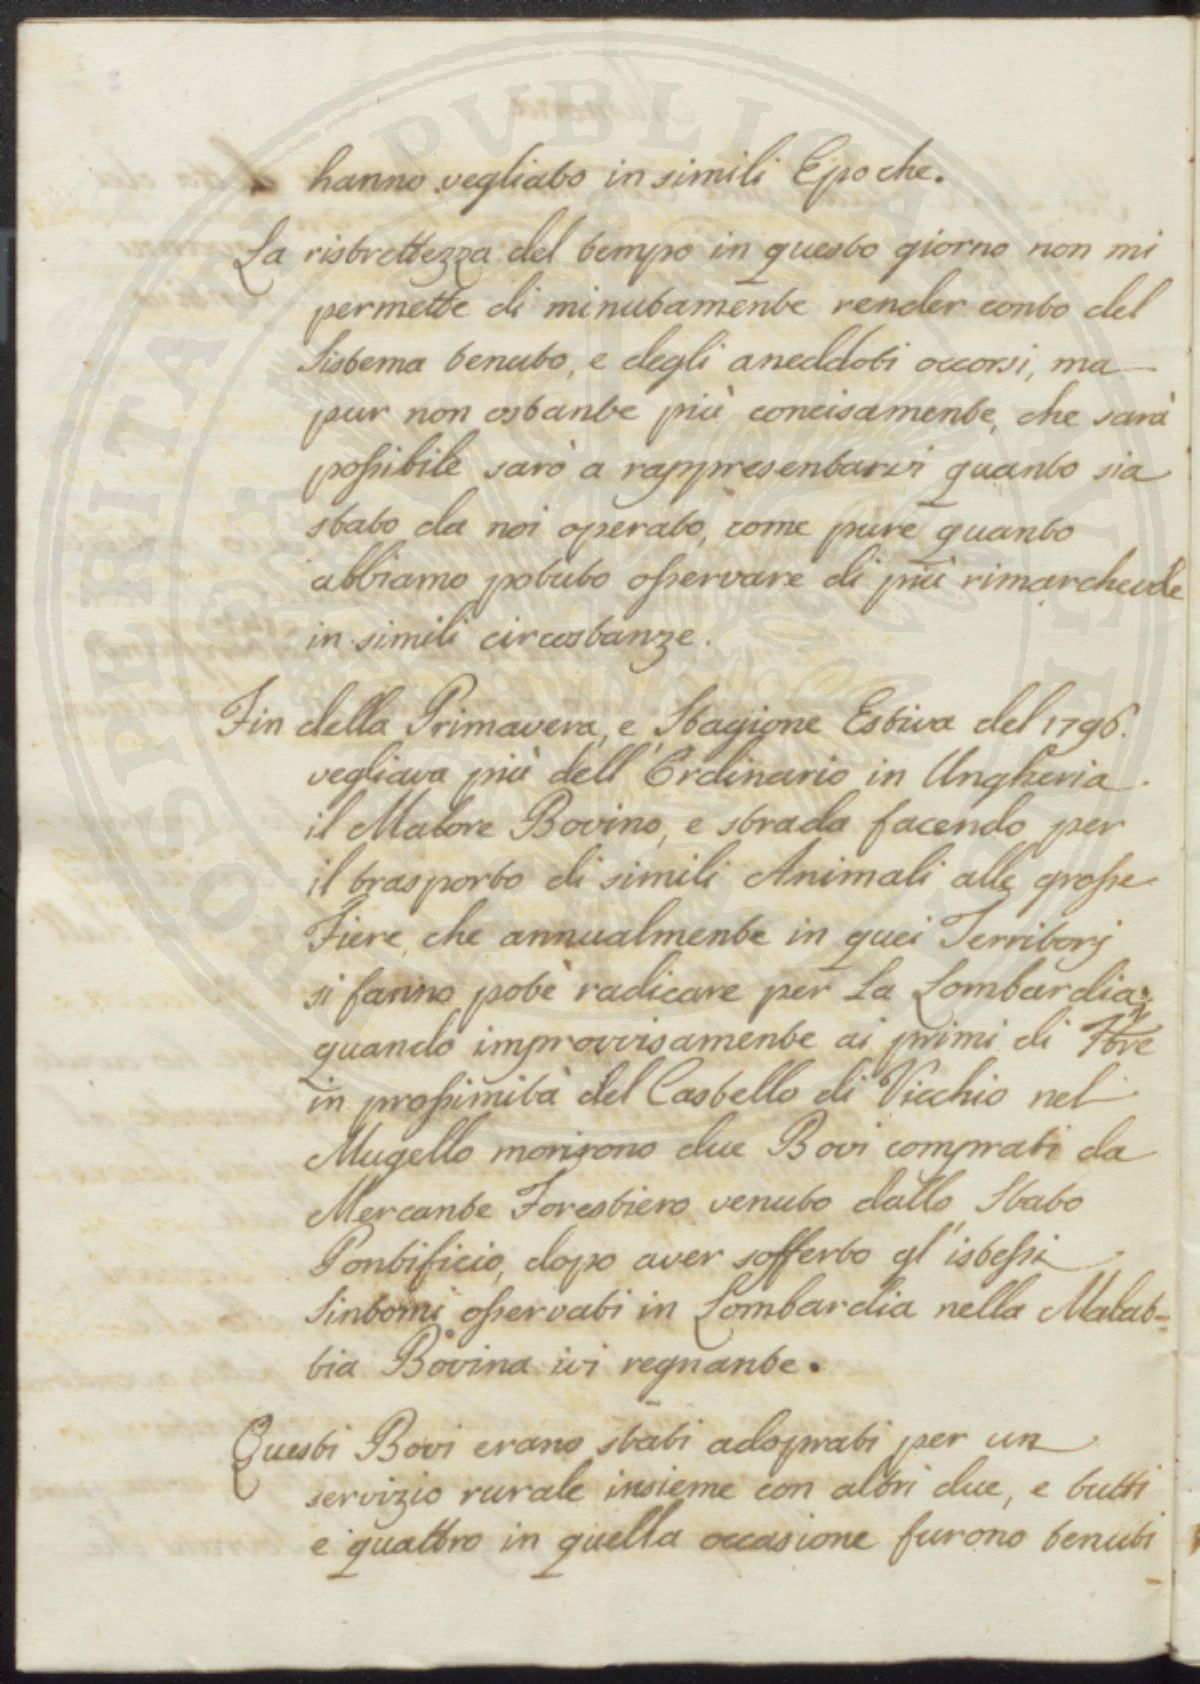 hanno vegliato in simili Epoche.
La ristrettezza del tempo in questo giorno non mi
permette di minutamente render conto del
Sistema tenuto, e degli aneddoti occorsi, ma
pur non ostante più concisamente, che sarà
possibile sarò a rappresentarvi quanto sia
stato da noi operato, come pure quanto
abbiamo potuto osservare di più rimarchevole
in simili circostanze.
Fin della Primavera, e Stagione Estiva del 1796.
vegliava più dell'Ordinario in Ungheria
il Malore Bovino, e strada facendo per
il trasporto di simili Animali alle grosse
Fiere, che annualmente in quei Territorj
si fanno potè radicare per La Lombardia;
quando improvvisamente ai primi di 7bre
in prossimità del Castello di Vicchio nel
Mugello morirono due Bovi comprati da
Mercante Forestiero venuto dallo Stato
Pontificio, dopo aver sofferto gl'istessi
Sintomi osservati in Lombardia nella Malat=
tia Bovina ivi regnante.
Questi Bovi erano stati adoprati per un
servizio rurale insieme con altri due, e tutti
e quattro in quella occasione furono tenuti
PUBLICAE
PROSPERITATI